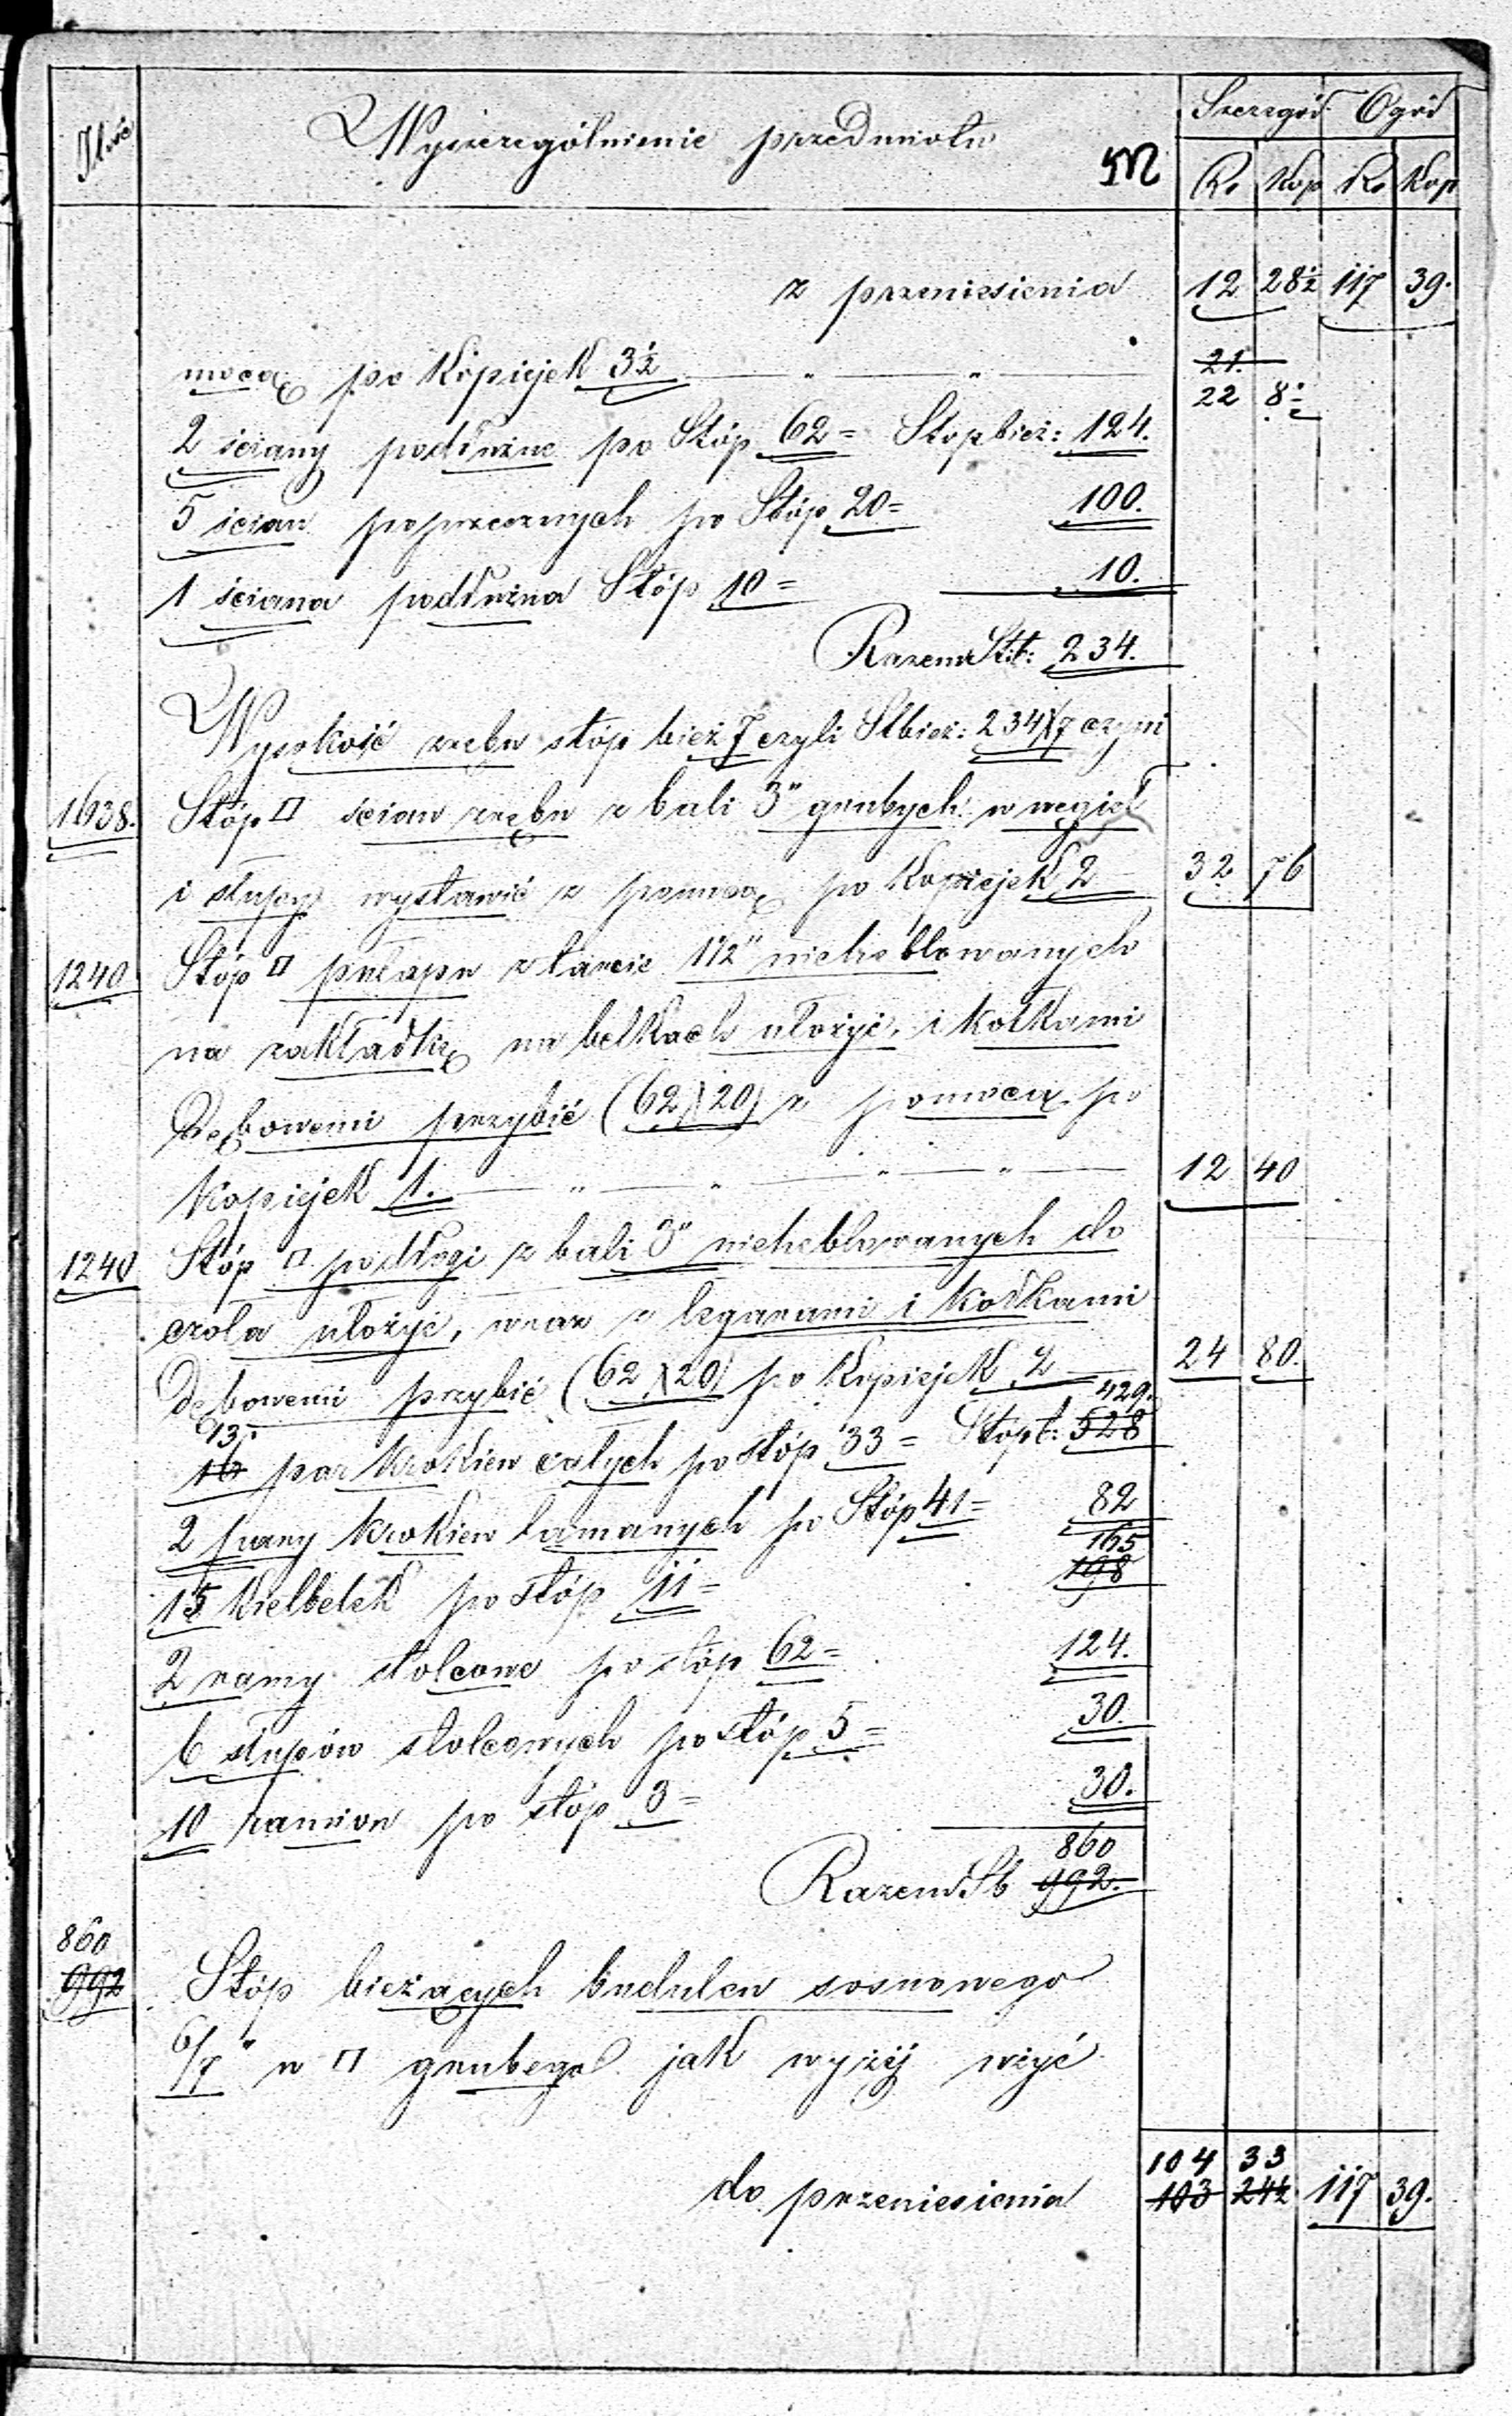 Ilość Wyszczególnienie przedmiotu Szczegół Ogół
Rs Kop Rs Kop
z przeniesienia 12 28½ 117 39.
mocą po Kopiejek 3½ — " — " — 21.
22 8½
2 ściany podłużne po Stóp 62 = Stop bież: 124.
5 ścian poprzecznych po Stóp 20 = 100.
1 ściana podłużna Stóp 10 = 10.
Razem St: 234.
Wysokość zrębu stóp bież 7 czyli St bież: 234 X 7 czyni
1638. Stóp □ ścian zrębu z bali 3" grubych w węgieł
i słupy wystawić z pomocą po Kopiejek 2 — 32 76
1240 Stóp □ pułapu z tarcic 1½" nieheblowanych
na zakładkę na belkach ułożyć, i kołkami
dębowemi przybić (62 X 20) z pomocą po
Kopiejek 1. — " — " — " — " — 12 40
1240 Stóp □ podłogi z bali 3" nieheblowanych do
czoła ułożyć, wraz z legarami i kołkami
dębowemi przybić (62 X 20) po Kopiejek 2 — 24 80.
13. 429.
16 par krokiew całych po stóp 33 = Stóp b: 528
2 pary krokiew łamanych po Stóp 41 = 82
165
15 Kielbelek po stóp 11 = 198
2 ramy stolcowe po stóp 62 = 124.
6 słupów stolcowych po stóp 5 = 30.
10 ramion po stóp 3 = 30.
860
Razem Sb 992.
860
992 Stóp bieżących budulcu sosnowego
6/7" w □ grubego jak wyżej użyć
104 33
do przeniesienia 103 24½ 117 39.